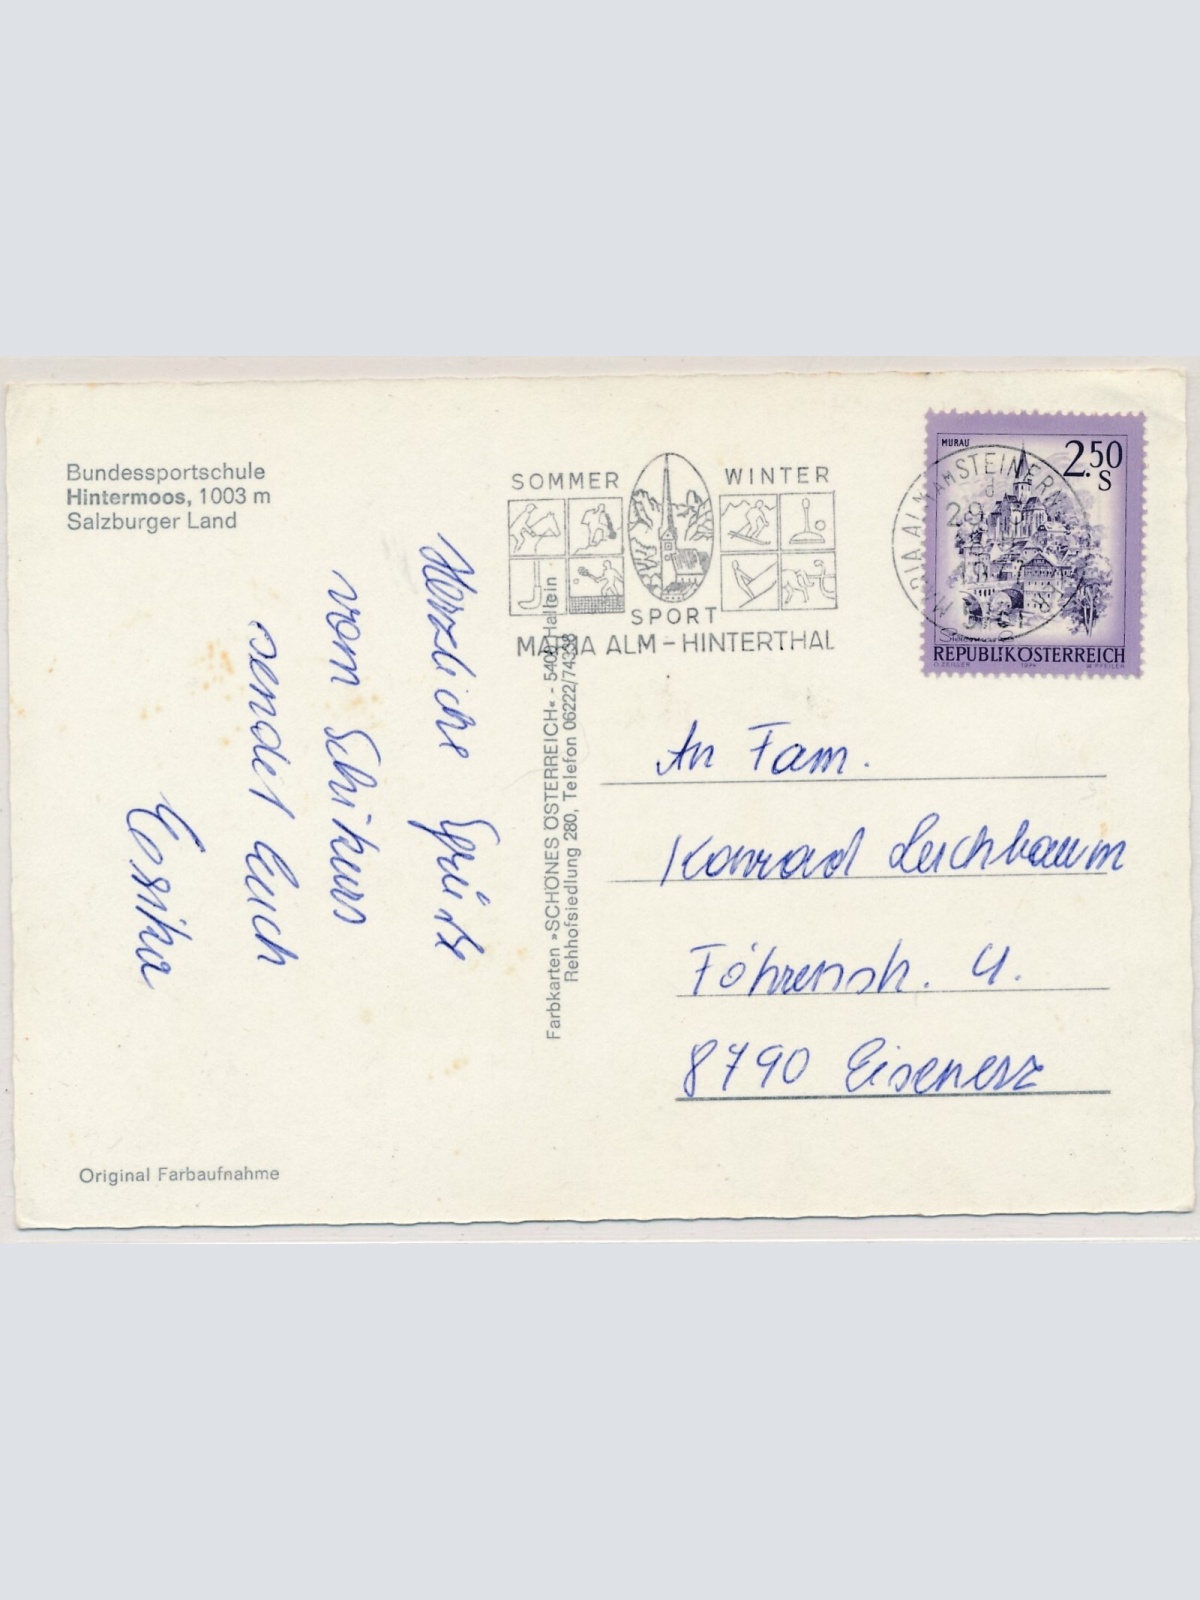 Bundessportschule
Hintermoos, 1003 m
Salzburger Land
Herzliche Grüße
vom Schikurs
sendet Euch
Original Farbaufnahme
Farbkarten »SCHÖNES ÖSTERREICH« - 5400 Hallein
Rehhofsiedlung 280, Telefon 06222/74338
SOMMER
WINTER
SPORT
MARIA ALM – HINTERTHAL
MURAU
2.50
S
REPUBLIK ÖSTERREICH
O. ZEILLER 1974 W. PFEILER
MARIA ALM AM STEINERN
An Fam.
Konrad Lerchbaum
Föhrenstr. 4.
8790 Eisenerz